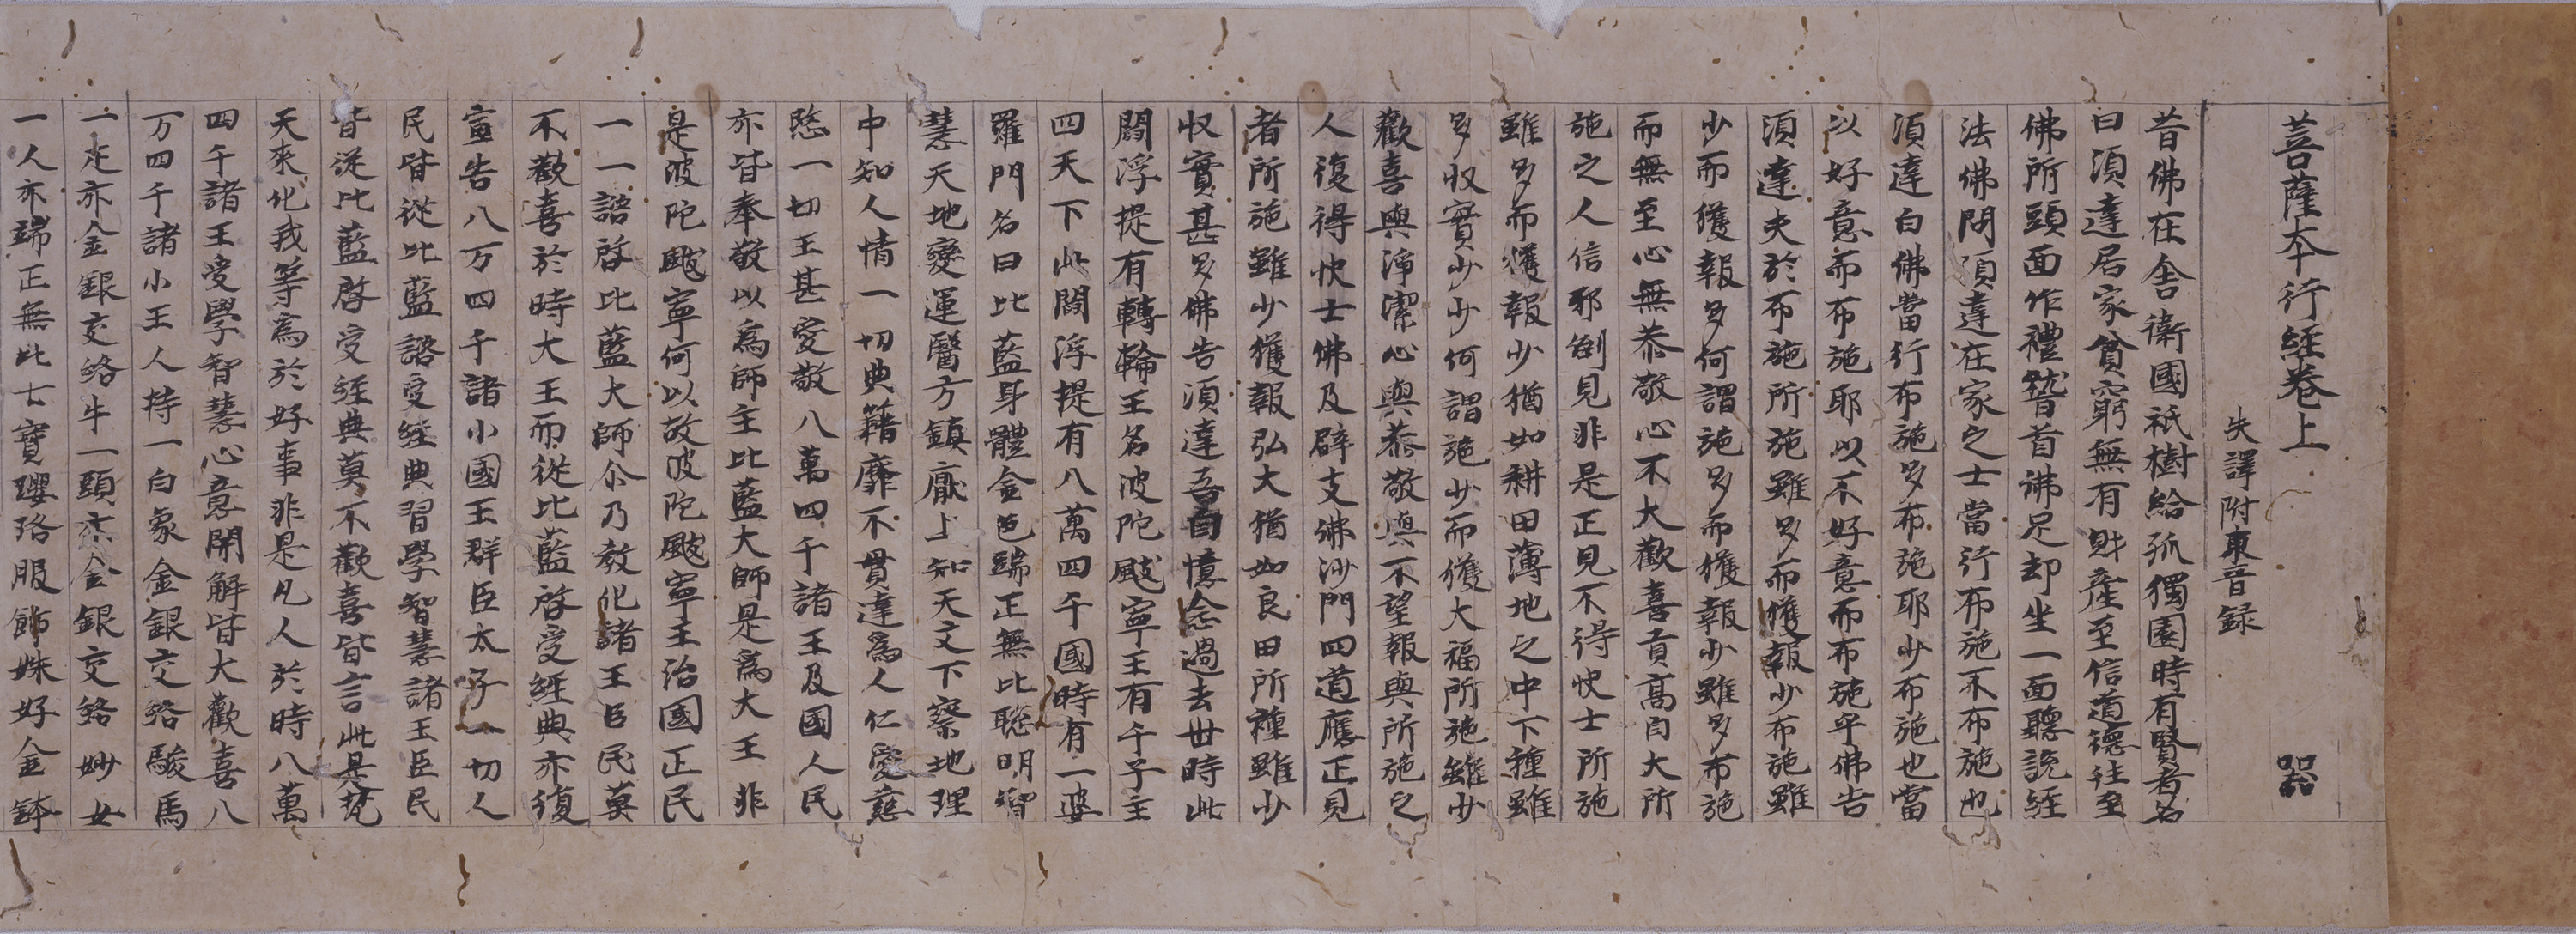 菩薩本行經卷上 器
失譯附東晉録
昔佛在舍衛國祇樹給孤獨園時有賢者名
曰須達居家貧窮無有財產至信道德往至
佛所頭面作禮稽首佛足却坐一面聽說經
法佛問須達在家之士當行布施不布施也
須達白佛當行布施多布施耶少布施也當
以好意而布施耶以不好意而布施乎佛告
須達夫於布施所施雖多而獲報少布施雖
少而獲報多何謂施多而獲報少雖多布施
而無至心無恭敬心不大歡喜貢高自大所
施之人信邪倒見非是正見不得快士所施
雖多而獲報少猶如耕田薄地之中下種雖
多収實少少何謂施少而獲大福所施雖少
歡喜與淨潔心與恭敬與不望報與所施之
人復得快士佛及辟支佛沙門四道應正見
者所施雖少獲報弘大猶如良田所種雖少
収實甚多佛告須達吾自憶念過去世時此
閻浮提有轉輪王名波陀颰寧王有千子主
四天下此閻浮提有八萬四千國時有一婆
羅門名曰比藍身體金色端正無比聡明智
慧天地變運醫方鎮厭上知天文下察地理
中知人情一切典籍靡不貫達為人仁愛慈
愍一切王甚愛敬八萬四千諸王及國人民
亦皆奉敬以為師主比藍大師是為大王非
是波陀颰寧何以故波陀颰寧王治國正民
一一諮啓比藍大師尒乃教化諸王臣民莫
不歡喜於時大王而從比藍啓受經典亦復
宣告八万四千諸小國王群臣太子一切人
民皆從比藍諮受經典習學智慧諸王臣民
皆從比藍啓受經典莫不歡喜皆言此是梵
天來化我等為於好事非是凡人於時八萬
四千諸王受學智慧心意開解皆大歡喜八
万四千諸小王人持一白象金銀交絡駿馬
一疋亦金銀交絡牛一頭亦金銀交絡妙女
一人亦端正無比七寶瓔珞服飾姝好金鉢